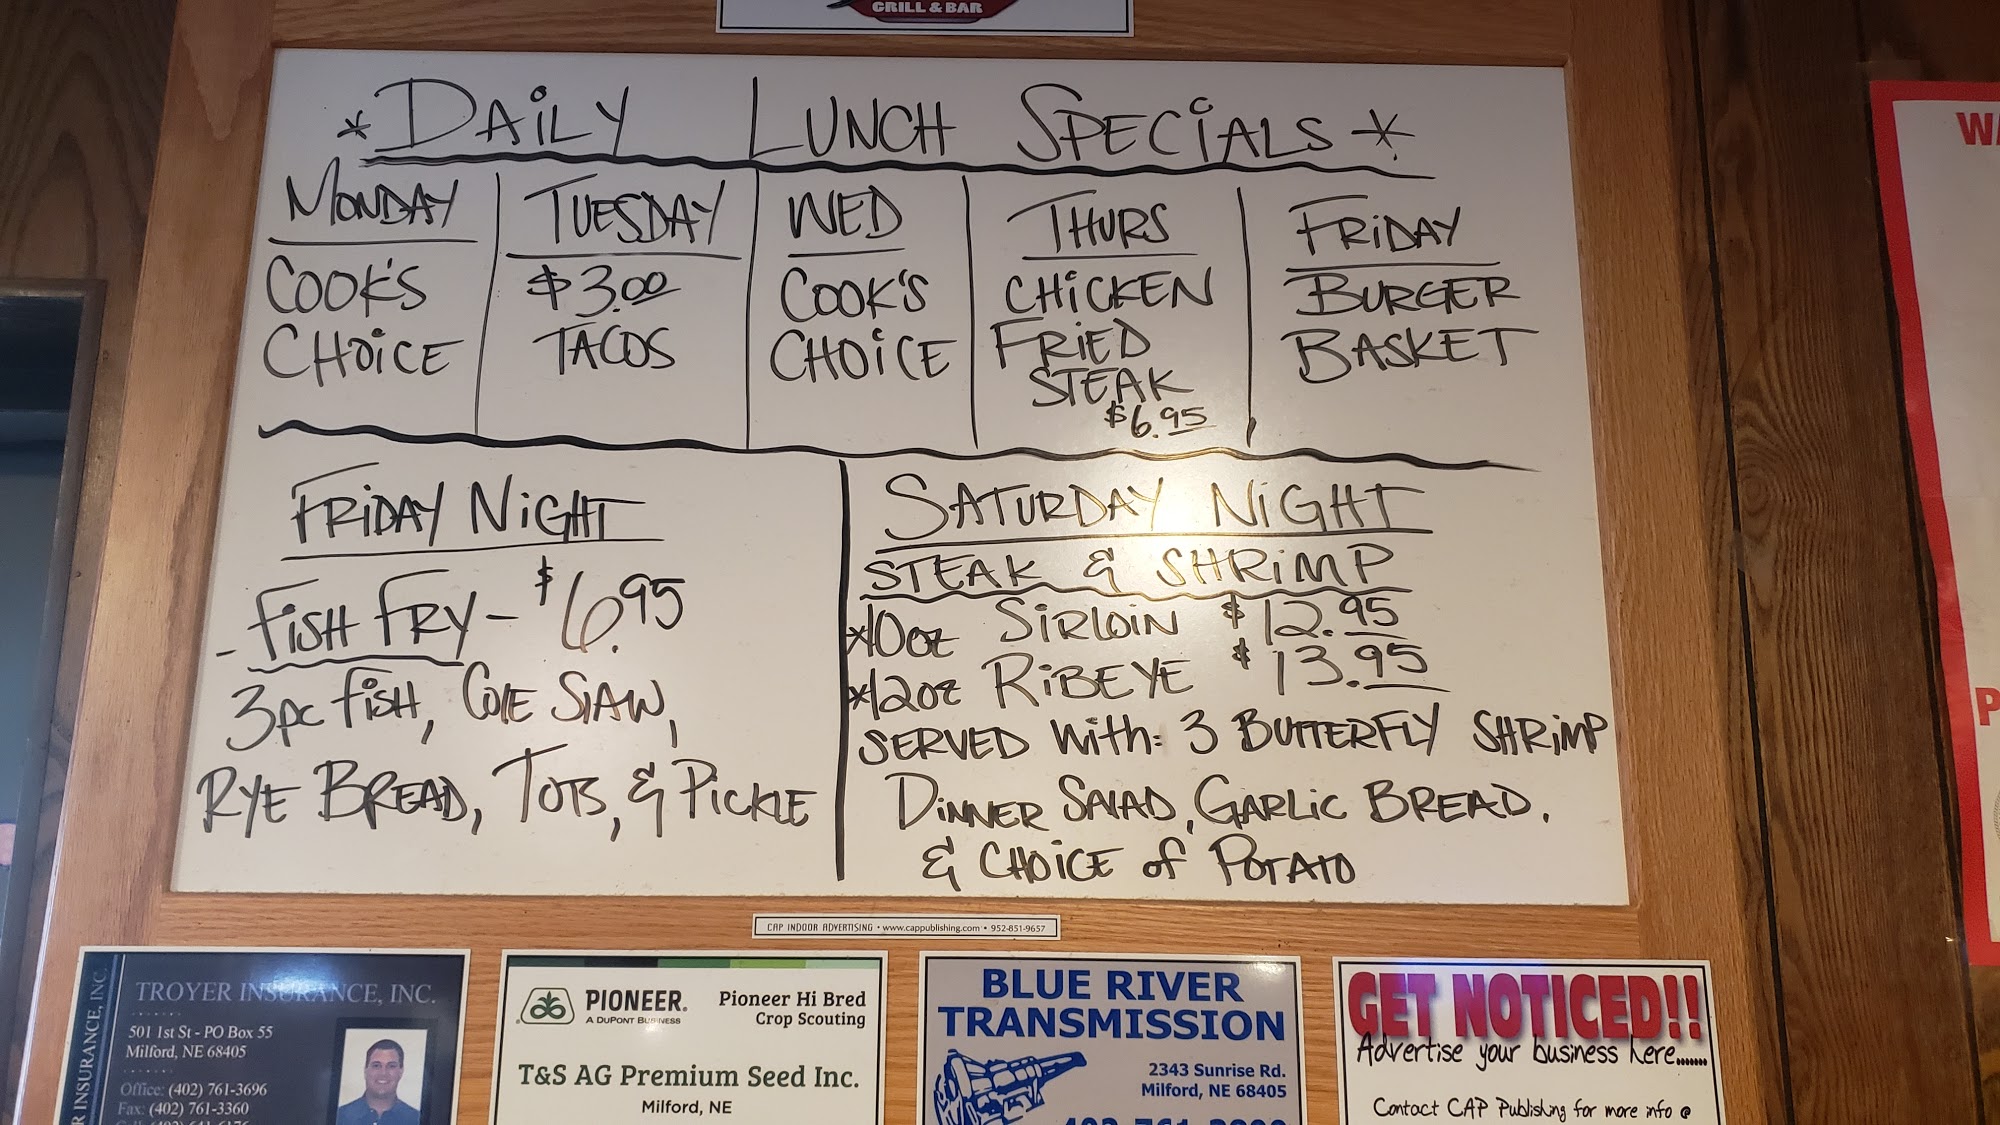 GRILL & BAR
* DAILY LUNCH SPECIALS *
MONDAY
COOK'S
CHOICE
TUESDAY
$3.00
TACOS
WED
COOK'S
CHOICE
THURS
CHICKEN
FRIED
STEAK
$6.95
FRIDAY
BURGER
BASKET
FRIDAY NIGHT
- FISH FRY - $6.95
3pc FISH, COLE SLAW,
RYE BREAD, TOTS, & PICKLE
SATURDAY NIGHT
STEAK & SHRIMP
*10oz SIRLOIN $12.95
*12oz RIBEYE $13.95
SERVED With: 3 BUTTERFLY SHRIMP
DINNER SALAD, GARLIC BREAD,
& CHOICE of POTATO
CAP INDOOR ADVERTISING • www.cappublishing.com • 952-851-9657
INSURANCE, INC.
TROYER INSURANCE, INC.
501 1st St - PO Box 55
Milford, NE 68405
Office: (402) 761-3696
Fax: (402) 761-3360
PIONEER.
A DUPONT BUSINESS
Pioneer Hi Bred
Crop Scouting
T&S AG Premium Seed Inc.
Milford, NE
BLUE RIVER
TRANSMISSION
2343 Sunrise Rd.
Milford, NE 68405
GET NOTICED!!
Advertise your business here.......
Contact CAP Publishing for more info @